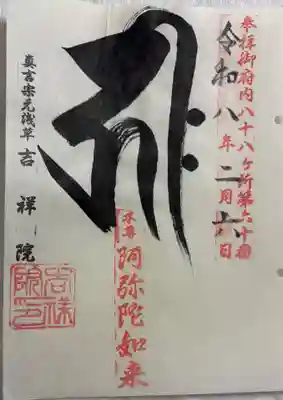 奉拝御府内八十八ヶ所第六十番
令和八年二月六日
𑖮𑖿𑖨𑖱𑖾
本尊
阿弥陀如来
真言宗元浅草
吉祥院
吉祥院印